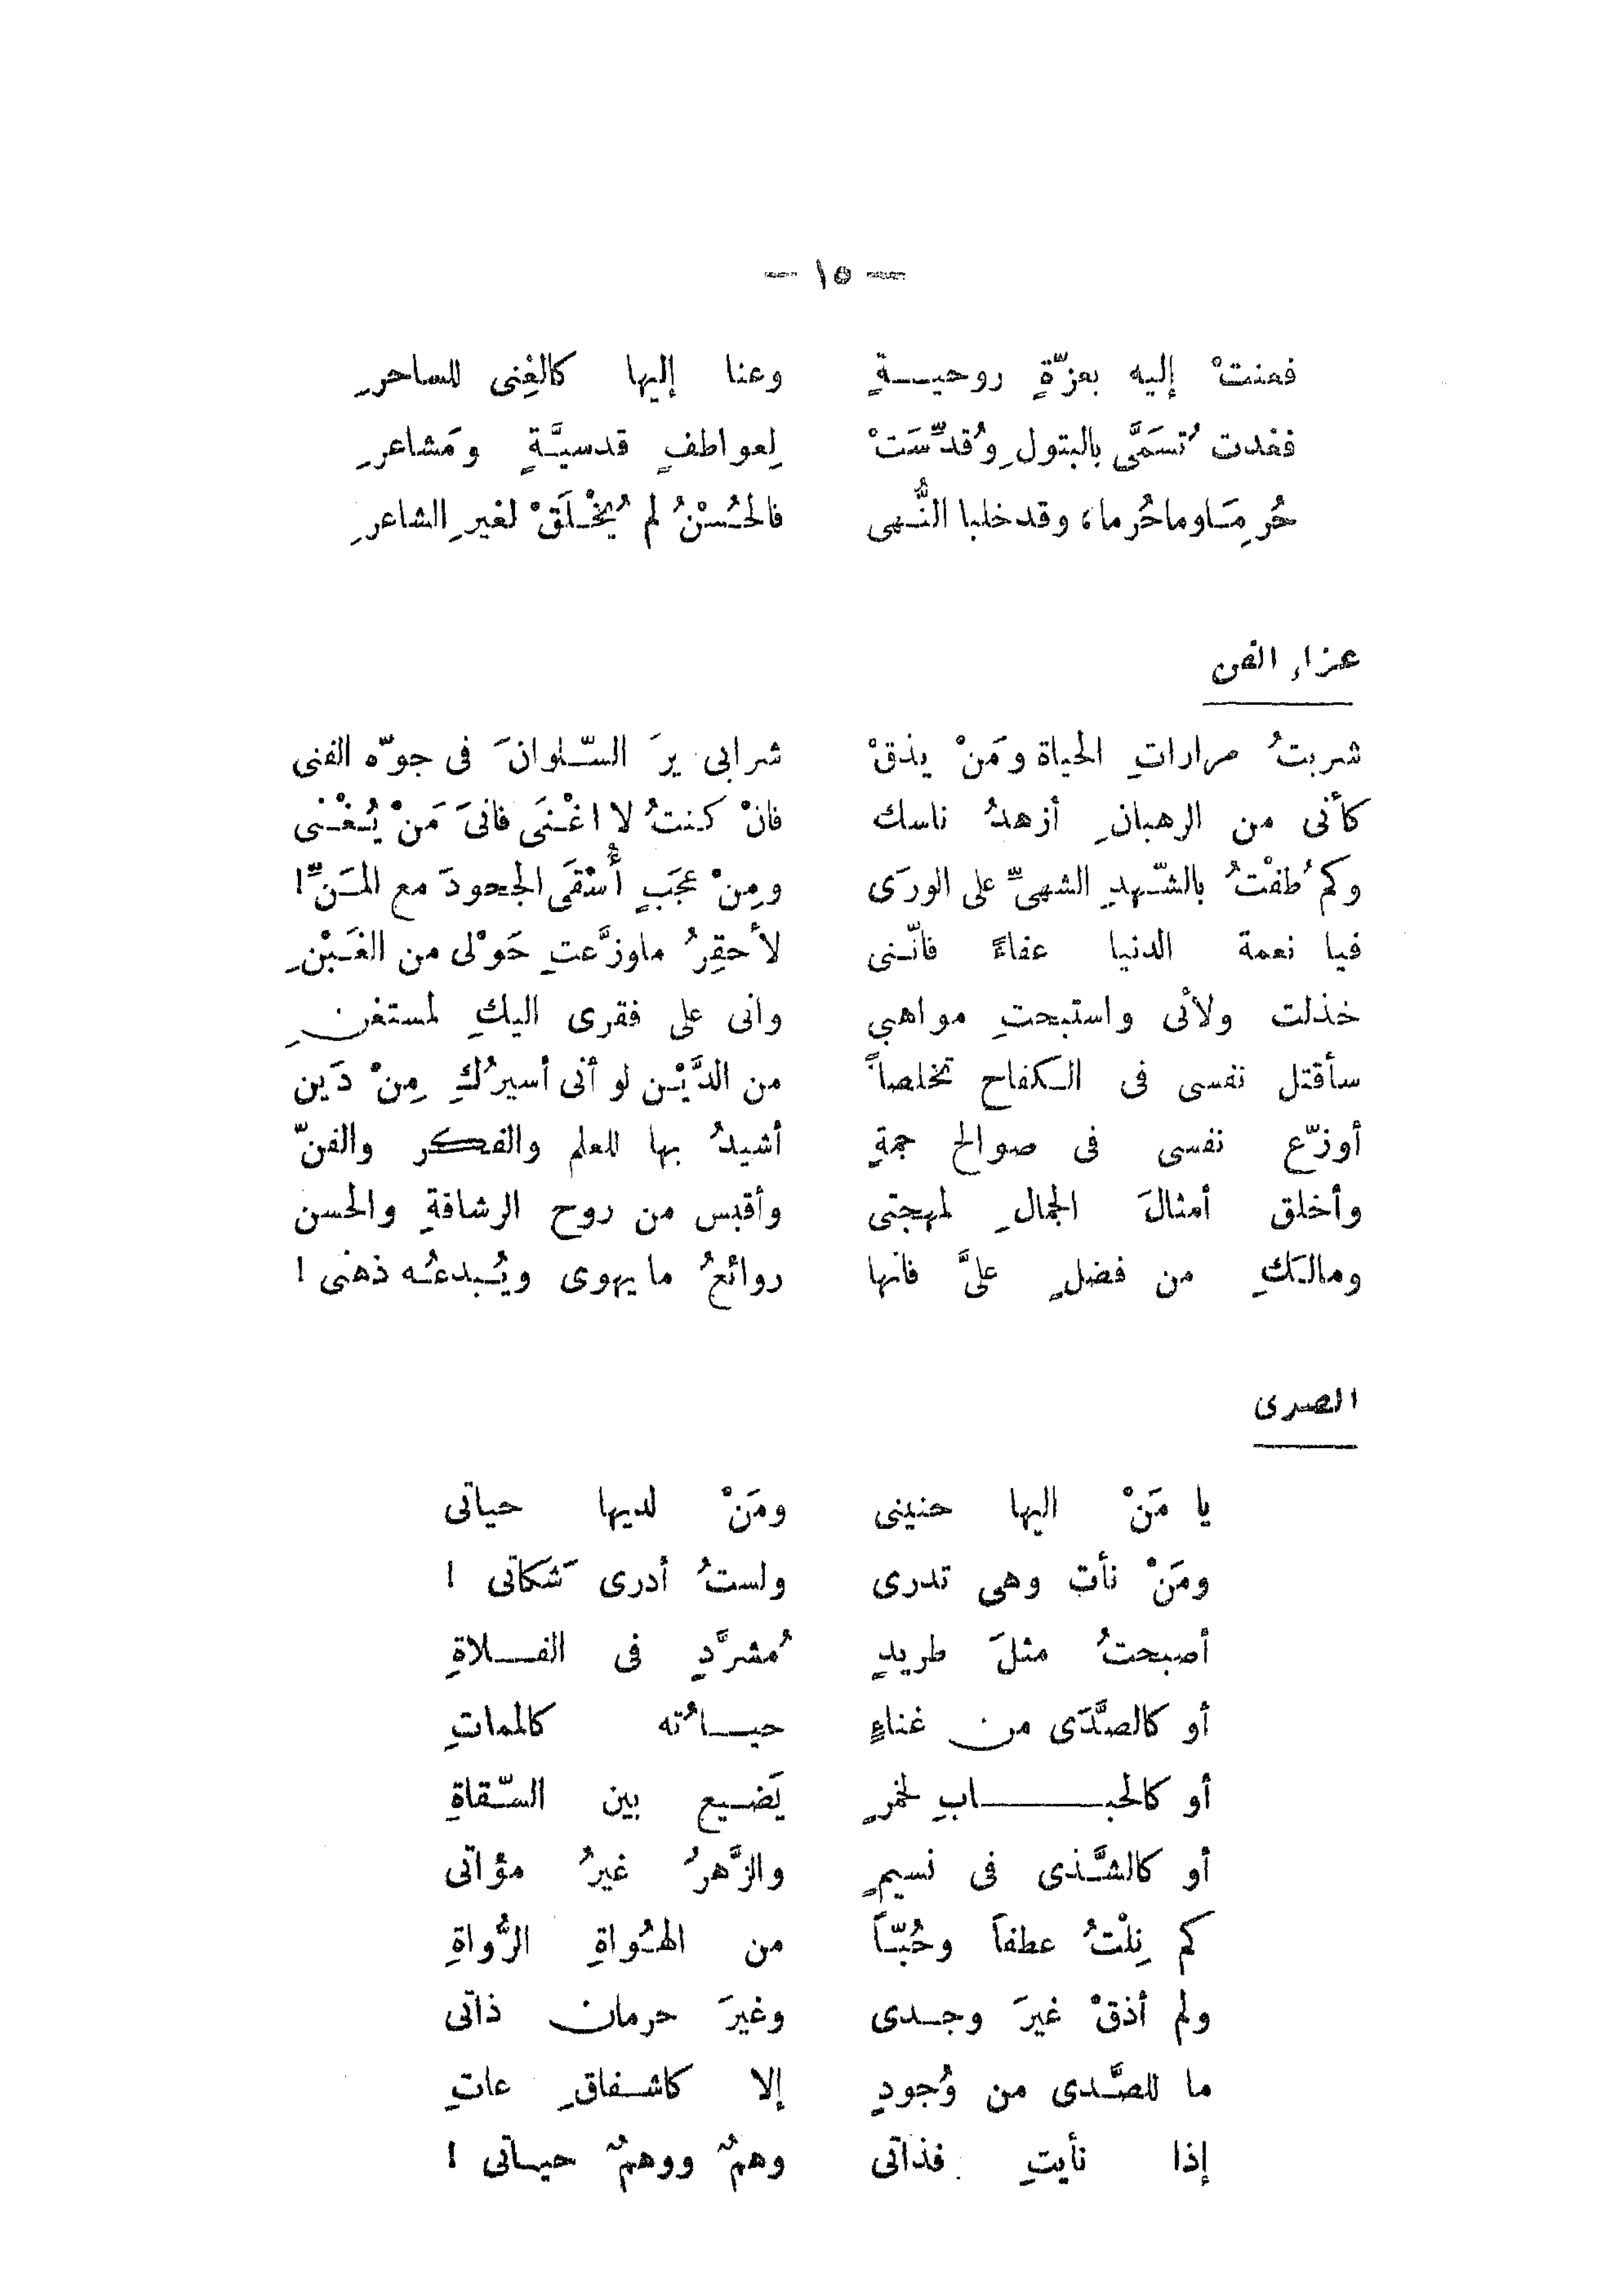 — ١٥ —
فعنتْ إليه بعزّةٍ روحيـــةٍ وعنا إليها كالغِنى للساحرِ
فغدت تُسَمَّى بالبتولِ وقُدِّسَتْ لِعواطفٍ قدسيَّةٍ ومَشاعرِ
حُرِمَـا وما حُرما، وقد خلبا النُّهى فالحُسْنُ لم يُخْلَقْ لغيرِ الشاعرِ
عزاء الفن
شربتُ مراراتِ الحياة ومَنْ يذقْ شرابى يرَ السّلوانَ فى جوّه الفنى
كأنى من الرهبانِ أزهدُ ناسك فانْ كنتُ لا اغْنَى فانىَ مَنْ يُغْنى
وكم طُفْتُ بالشّهدِ الشهىِّ على الورَى ومِنْ عجَبٍ أُسْقَى الجحودَ مع المَنِّ!
فيا نعمة الدنيا عفاءً فانّنى لأحقِرُ ما وزَّعتِ حَوْلى من الغَبْنِ
خذلت ولائى واستبحتِ مواهبي وانى على فقرى اليكِ لمستغنِ
سأقتل نفسى فى الكفاح تخلصاً من الدَّيْن لو أنى أسيرُكِ مِنْ دَين
أوزّع نفسى فى صوالح جمةٍ أشيدُ بها للعلم والفكر والفنّ
وأخلق أمثالَ الجمالِ لمهجتى وأقبس من روح الرشاقةِ والحسن
ومالكِ من فضلٍ علىَّ فانها روائعُ ما يهوى ويُبدعُه ذهنى !
الصدى
يا مَنْ اليها حنينى ومَنْ لديها حياتى
ومَنْ نأت وهى تدرى ولستُ أدرى شَكاتى !
أصبحتُ مثلَ طريدٍ مُشرَّدٍ فى الفـــلاةِ
أو كالصَّدَى من غناءٍ حيـــاتُه كالمماتِ
أو كالحبـــابِ لخمرٍ يَضـيع بين السّقاةِ
أو كالشَّذى فى نسيمٍ والزَّهرُ غيرُ مؤاتى
كم نِلْتُ عطفاً وحُبّاً من الهُواةِ الرُّواةِ
ولم أذقْ غيرَ وجدى وغيرَ حرمان ذاتى
ما للصَّدى من وُجودٍ إلا كاشفاقِ عاتِ
إذا نأيتِ فذاتى وهمٌ ووهمٌ حياتى !